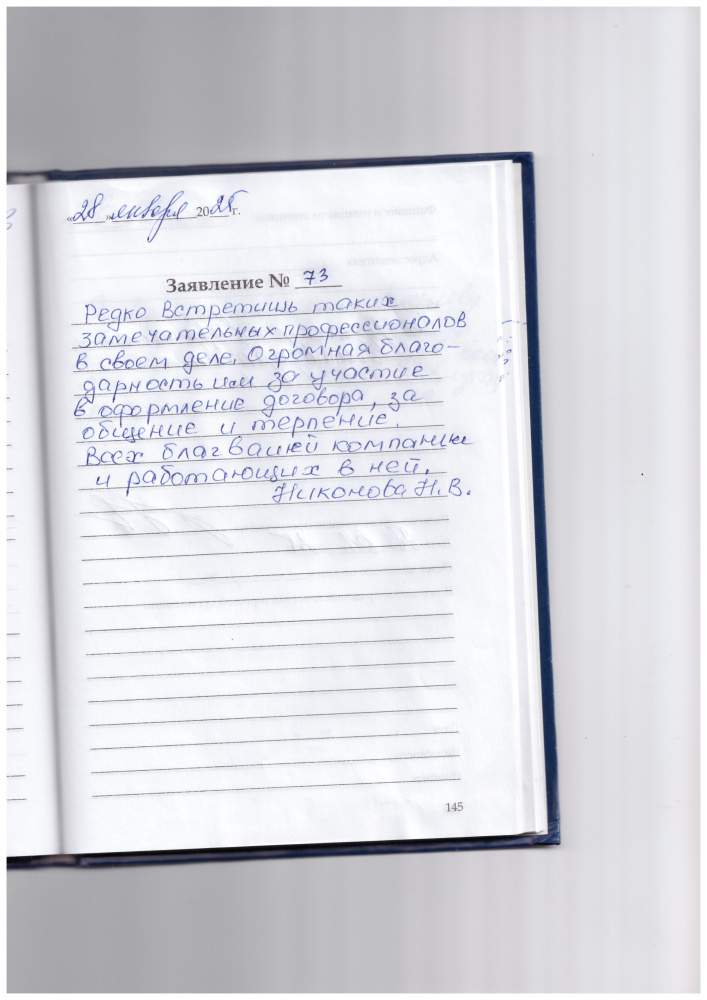 «28» января 2025 г.
Заявление № 73
Редко встретишь таких
замечательных профессионалов
в своем деле. Огромная благо-
дарность им за участие
в оформление договора, за
общение и терпение.
Всех благ вашей компании
и работающих в ней.
Никонова Н.В.
145